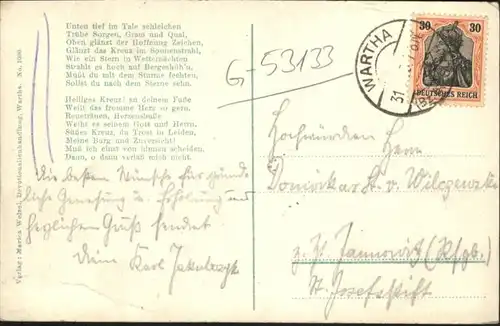 Unten tief im Tale schleichen
Trübe Sorgen, Gram und Qual,
Oben glänzt der Hoffnung Zeichen,
Glänzt das Kreuz im Sonnenstrahl,
Wie ein Stern in Wetternächten
Strahlt es hoch auf Bergeshöh'n.
Mußt du mit dem Sturme fechten,
Sollst du nach dem Sterne sehn.
Heiliges Kreuz! zu deinem Fuße
Weilt das fromme Herz so gern.
Reuetränen, Herzensbuße
Weiht es seinem Gott und Herrn.
Süßes Kreuz, du Trost in Leiden,
Meine Burg und Zuversicht!
Muß ich einst von hinnen scheiden,
Dann, o dann verlaß mich nicht.
Die besten Wünsche für
Genesung u. Erholung und
herzlichen Gruß sendet
Karl
Verlag: Devotionalienhandlung, Wartha. No.
G-53133
WARTHA
31
30 30
DEUTSCHES REICH
Hochwürden Herrn
v. Wilczewski
z. Zt. Jannowitz (Rsgb.)
St. Josefsstift